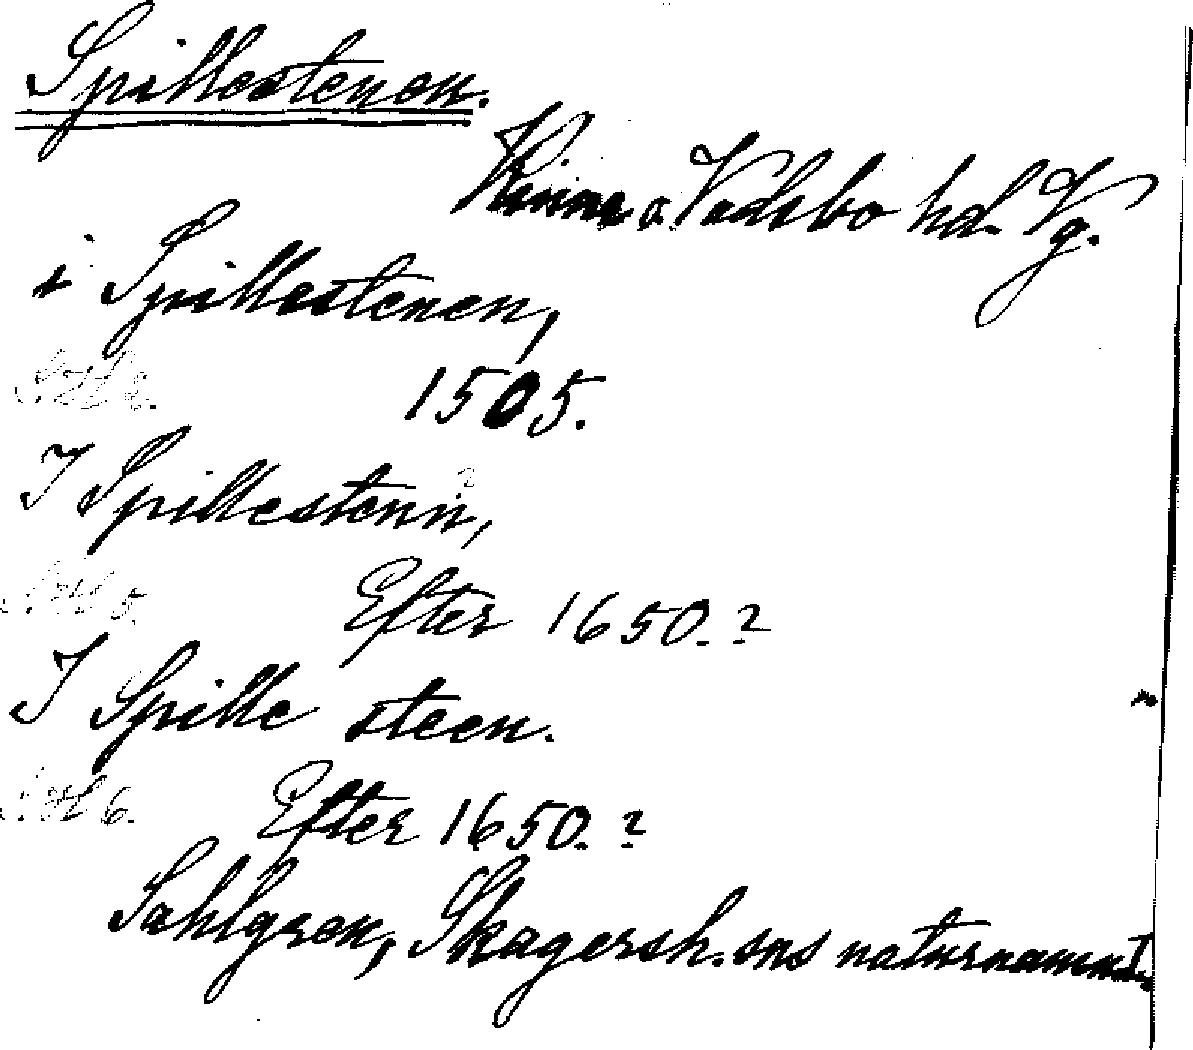 Spillestenen.
Kinne o. Vadsbo hd. Vg.
i Spillestenen,
1505.
I Spillestenn,
Efter 1650.?
I Spille steen.
6. Efter 1650.?
Sahlgren, Skagersh. sns naturnamn I.